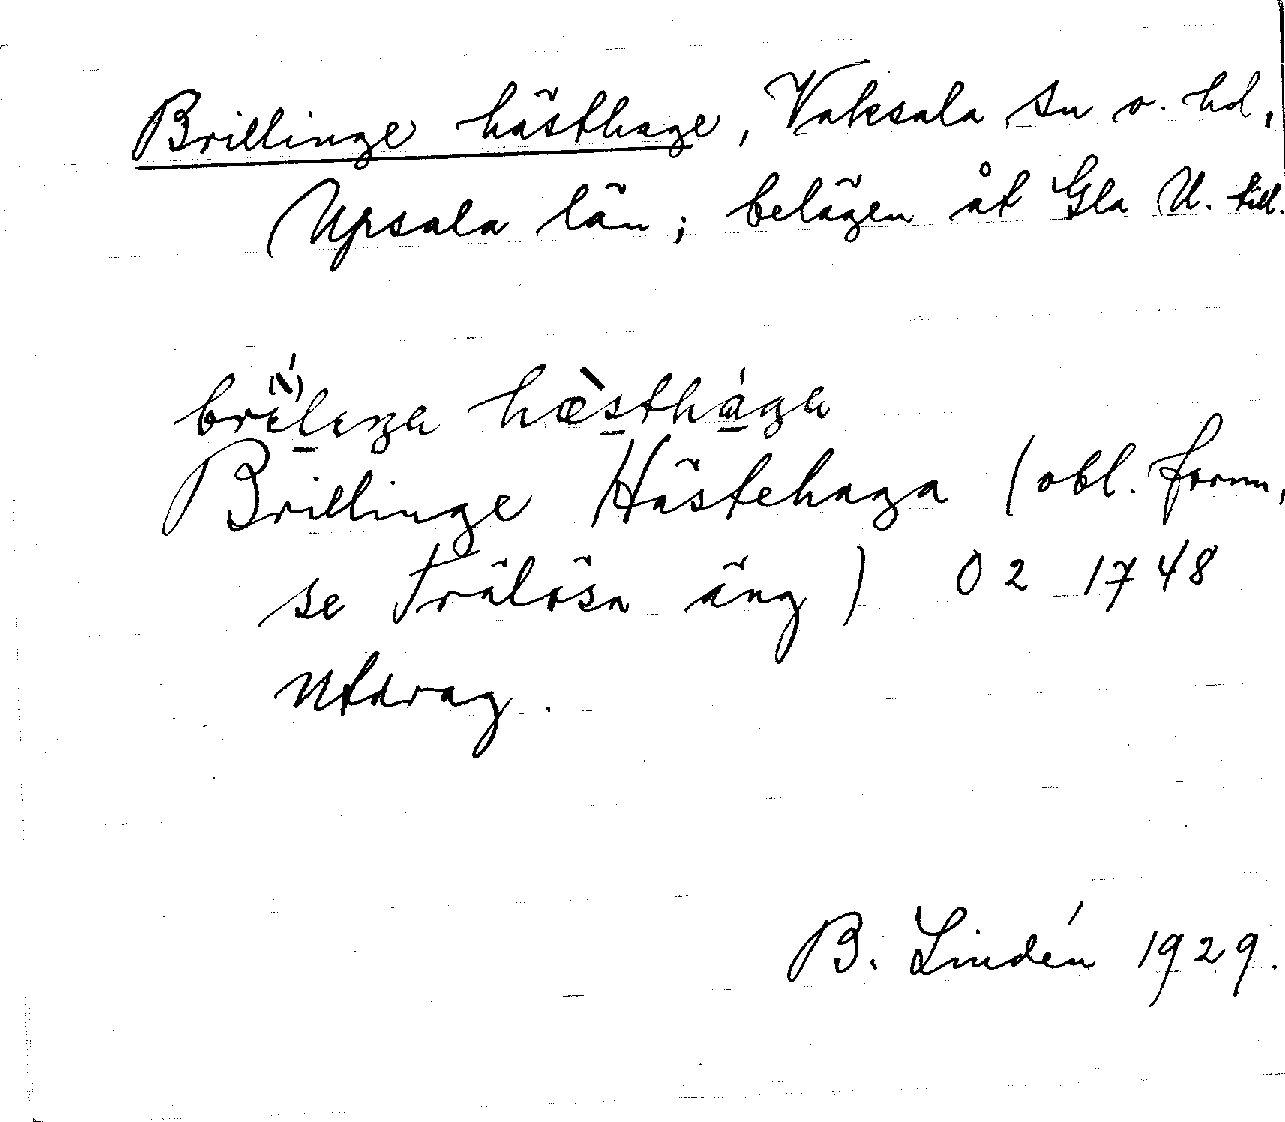 Brillinge hästhage, Vaksala sn o. hd,
Upsala län; belägen åt Gla U. till.
brìlıŋa hæ̀sthága
Brillinge Hästehaga (obl. form,
se Trälösa äng) 02 1748
Utdrag.
B. Lindén 1929.